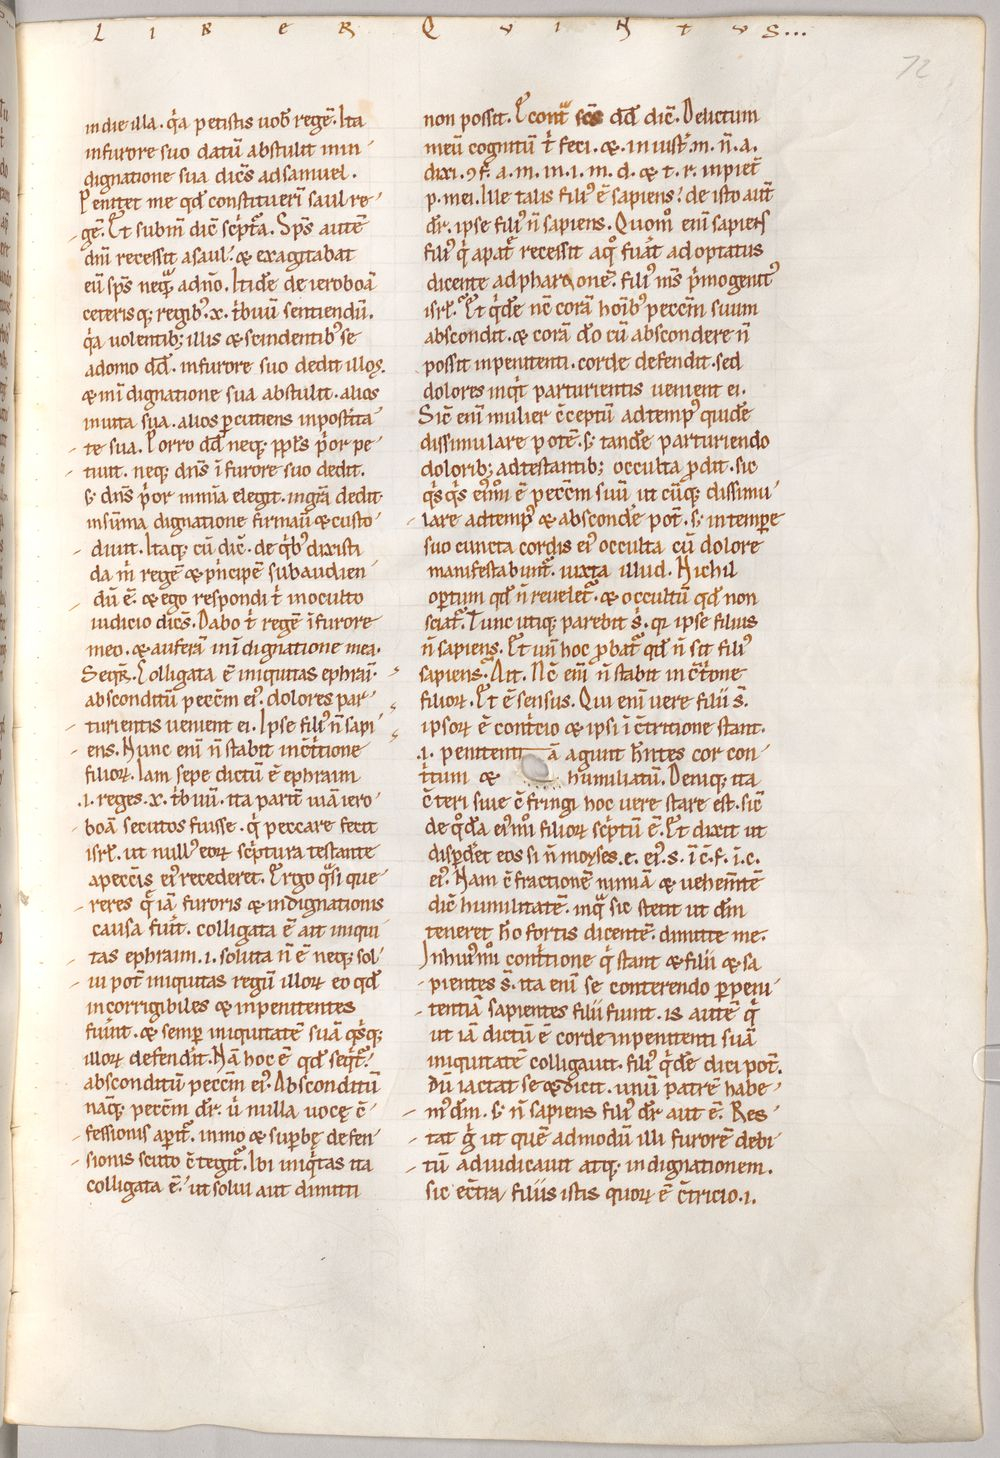 LIBER QUINTUS...
72
in die illa. q̇a petistis uob̄ regē. Ita
in furore suo datū abstulit in in
dignatione sua dic̄s ad samuel.
Penitet me qd̄ constituerī saul re
gē. Et subinī dic̄ sc̄pt̄a. Sp̄s autē
dn̄i recessit a saul. & exagitabat
eū sp̄s neq̄ā a dn̄o. Itidē de ieroboā
ceterisq; regib; .x. tribuū sentiendū.
q̇a uolentib; illis & scindentib; se
a domo dd̄. in furore suo dedit illos.
& in ī dignatione sua abstulit. alios
in uita sua. alios p̄cutiens in post̄ita
te sua. Porro dd̄ neq; pp̄ls p̄or pe
tiuit. neq; dn̄s ī furore suo dedit.
s; dn̄s p̄or in mīa elegit. in gr̄a dedit
in sūma dignatione firmauī & custo
diuit. Itaq; cū dic̄. de q̇b; dixisti
da m̄ regē & p̄ncipē subaudien
dū ē. & ego respondi t̄ in oculto
iudicio dic̄s. Dabo t̄ regē ī furore
meo. & auferā in ī dignatione mea.
Seqr̄. Colligata ē iniquitas ephraī.
absconditū pecc̄m ei;. dolores par
turientis uenient ei. Ipse fili; n̄ sapi
ens. Nunc enī n̄ stabit in c̄t̄tione
filioꝝ. Iam sepe dictū ē ephraim
.i. reges .x. tribuū. ita partī uiā iero
boā secutos fuisse. q̇ peccare fecit
isrl̄. ut null; eoꝝ sc̄ptura testante
a pecc̄is ei; recederet. Ergo q̄si que
reres q̄ iā furoris & indignationis
causa fuit̄. colligata ē ait iniqui
tas ephraim .i. soluta n̄ ē neq; sol
ui pot̄ iniquitas regū illoꝝ eo qd̄
incorrigibiles & inpenitentes
fuer̄unt. & semp̄ iniquitatē suā q̇sq;
illoꝝ defendit̄. Nā hoc ē qd̄ seqt̄.
absconditū pecc̄m ei;. Absconditū
naq; pecc̄m dr̄. ū nulla uocę c̄
fessionis aperit̄. inmo & sup̄bę defen
sionis scuto c̄tegit̄. Ibi iniq̇tas ita
colligata ē. ut solui aut dimitti
non possit. Econt̄ sc̄s dd̄ dic̄. Delictum
meū cognitū t̄ feci. &. iniust̄. m. n̄. a.
dixi. ꝯf. a. m. in. i. m. d. & t. r. inpiet̄
p. mei. Ille talis fili; ē sapiens. de isto aut̄
dr̄. ipse fili; n̄ sapiens. Quom̊ enī sapiens
fili; q̇ a pat̄ recessit a q̊ fuat̄ adoptatus
dicente ad pharaonē. fili; m̄s p̄mogenit;
isrl̄. Et q̇dē nc̄ corā hoīb; pecc̄m suum
abscondit. & corā dō cū abscondere n̄
possit inpenitenti corde defendit. sed
dolores inq̇t parturientis uenient ei.
Sic̄ enī mulier c̄ceptū ad temp; quidē
dissimulare potē. s; tandē parturiendo
dolorib; adtestantib; occulta p̄dit. sic
q̇sq̇s ei;m̊i ē pecc̄m suū ut cūq; dissimu
lare ad temp; & abscondē pot̄. s; in tempore
suo cuncta cordis ei; occulta cū dolore
manifestabunt̄. iuxta illud. Nichil
optum qd̄ n̄ reuelet̄. & occultū qd̄ non
sciat̄. Tunc utiq; parebit s̄. qꝛ ipse filius
n̄ sapiens. Et un̄ hoc p̄bat̄ qd̄ n̄ sit fili;
sapiens. Ait. Nc̄ enī n̄ stabit in c̄t̄tione
filioꝝ. Et ē sensus. Qui enī uere filii s̄.
ipsoꝝ ē contricio & ipsi ī c̄tritione stant.
.i. penitentiā agunt hn̄tes cor con
tritum & humiliatū. Deniq; ita
c̄teri siue c̄fringi hoc uere stare est. sic̄
de q̊dā ei;m̊i filioꝝ sc̄ptū ē. Et dixit ut
disp̄det eos si n̄ moyses. e. ei;. s. ī c̄. f. ī. c.
ei;. Nam c̄fractionē nimiā & uehem̄tē
dic̄ humilitatē. in q̄ sic stetit ut dm̄
teneret h̊o fortis dicentē. dimitte me.
In hui;m̊i cont̄tione q̇ stant & filii & sa
pientes s̄. ita enī se conterendo p̄ peni
tentiā sapientes filii fiunt. is autē q̇
ut iā dictū ē corde inpenitenti suā
iniquitatē colligauit. fili; q̇dē dici pot̄.
dū iactat se & dicit. unū patrē habe
m; dm̄. s; n̄ sapiens fili; dr̄ aut ē. Res
tat ḡ ut quē ad modū illi furorē debi
tū adiudicauit atq; indignationem.
sic ec̄tra filiis istis quoꝝ ē c̄tricio .i.